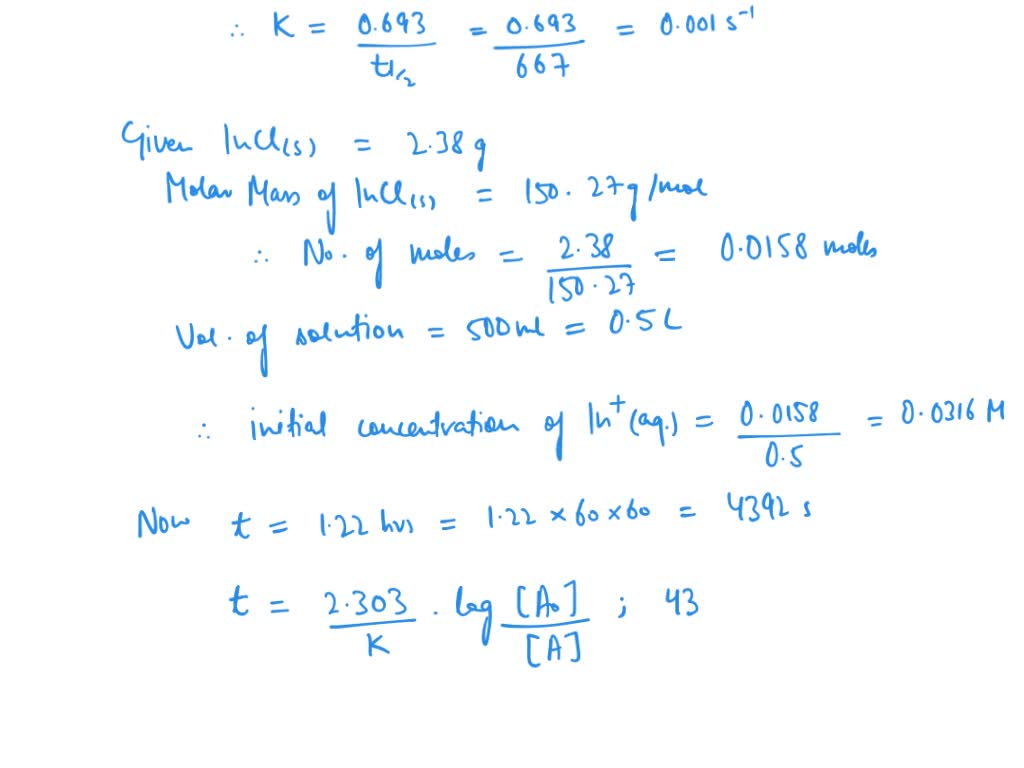 ∴ K = 0.693 / t1/2 = 0.693 / 667 = 0.001 s⁻¹
Given InCl(s) = 2.38 g
Molar Mass of InCl(s) = 150.27 g/mol
∴ No. of moles = 2.38 / 150.27 = 0.0158 moles
Vol. of solution = 500 ml = 0.5 L
∴ initial concentration of In⁺(aq.) = 0.0158 / 0.5 = 0.0316 M
Now t = 1.22 hrs = 1.22 × 60 × 60 = 4392 s
t = 2.303 / K . log [A₀] / [A] ; 43